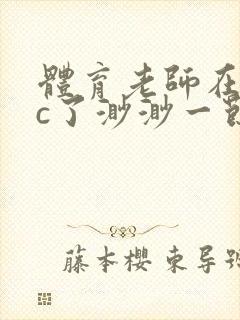 體育老師在
c了渺渺一節
藤本櫻 束导